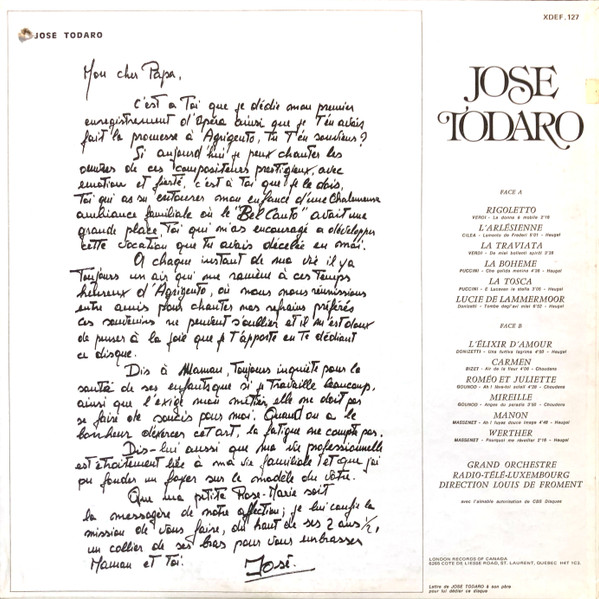 JOSE TODARO
Mon cher Papa,
C'est à Toi que je dédie mon premier
enregistrement d'Opéra ainsi que je T'en avais
fait la promesse à Agrigento, Tu T'en souviens ?
Si aujourd'hui je peux chanter les
œuvres de ces compositeurs prestigieux avec
emotion et fierté, c'est à Toi que je le dois,
Toi qui as su entourer mon enfance d'une Chaleureuse
ambiance familiale où le "Bel Canto" avait une
grande place, Toi qui m'as encouragé à développer
cette vocation que tu avais décelée en moi.
A chaque instant de ma vie il y a
Toujours un air qui me ramène à ces Temps
heureux d'Agrigento, où nous nous réunissions
entre amis pour chanter nos refrains préférés
ces souvenirs ne peuvent s'oublier et il m'est doux
de penser à la joie que je T'apporte en Te dédiant
ce disque.
Dis à Maman, Toujours inquiète pour la
santé de ses enfants que si je Travaille beaucoup,
ainsi que l'exige mon métier, elle ne doit pas
se faire de soucis pour moi. Quand on a le
bonheur d'exercer cet art, la fatigue ne compte pas.
Dis-lui aussi que ma vie professionnelle
est étroitement liée à ma vie familiale et que j'ai
pu fonder un foyer sur le modèle du vôtre.
Que ma petite Rose-Marie soit
la messagère de notre affection; je lui confie la
mission de vous faire, du haut de ses 2 ans 1/2,
un collier de ses bras pour vous embrasser
Maman et Toi.
José.
XDEF.127
JOSE
TODARO
FACE A
RIGOLETTO
VERDI - La donna è mobile 2'16
L'ARLÉSIENNE
CILEA - Lamento de Frederi 5'01 - Heugel
LA TRAVIATA
VERDI - De miei bollenti spiriti 3'38
LA BOHEME
PUCCINI - Che gelida manina 4'38 - Heugel
LA TOSCA
PUCCINI - E Lucevan le stelle 3'06 - Heugel
LUCIE DE LAMMERMOOR
Donizetti - Tombe degl'avi miei 6'02 - Heugel
FACE B
L'ÉLIXIR D'AMOUR
DONIZETTI - Una furtiva lagrima 4'50 - Heugel
CARMEN
BIZET - Air de la fleur 4'06 - Choudens
ROMÉO ET JULIETTE
GOUNOD - Ah ! lève-toi soleil 3'39 - Choudens
MIREILLE
GOUNOD - Anges du paradis 3'50 - Choudens
MANON
MASSENET - Ah ! fuyez douce image 4'46 - Heugel
WERTHER
MASSENET - Pourquoi me réveiller 2'18 - Heugel
GRAND ORCHESTRE
RADIO-TÉLÉ-LUXEMBOURG
DIRECTION LOUIS DE FROMENT
avec l'aimable autorisation de CBS Disques
LONDON RECORDS OF CANADA
5265 COTE DE LIESSE ROAD, ST. LAURENT, QUEBEC H4T 1C3.
Lettre de JOSE TODARO à son père
pour lui dédier ce disque